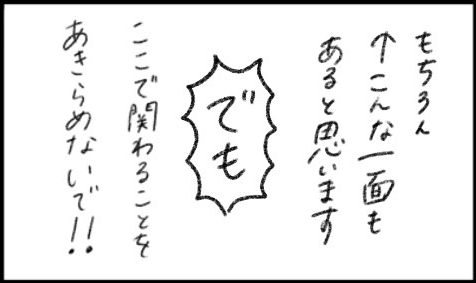 もちろん
↑こんな一面も
あると思います
でも
ここで関わることを
あきらめないで!!